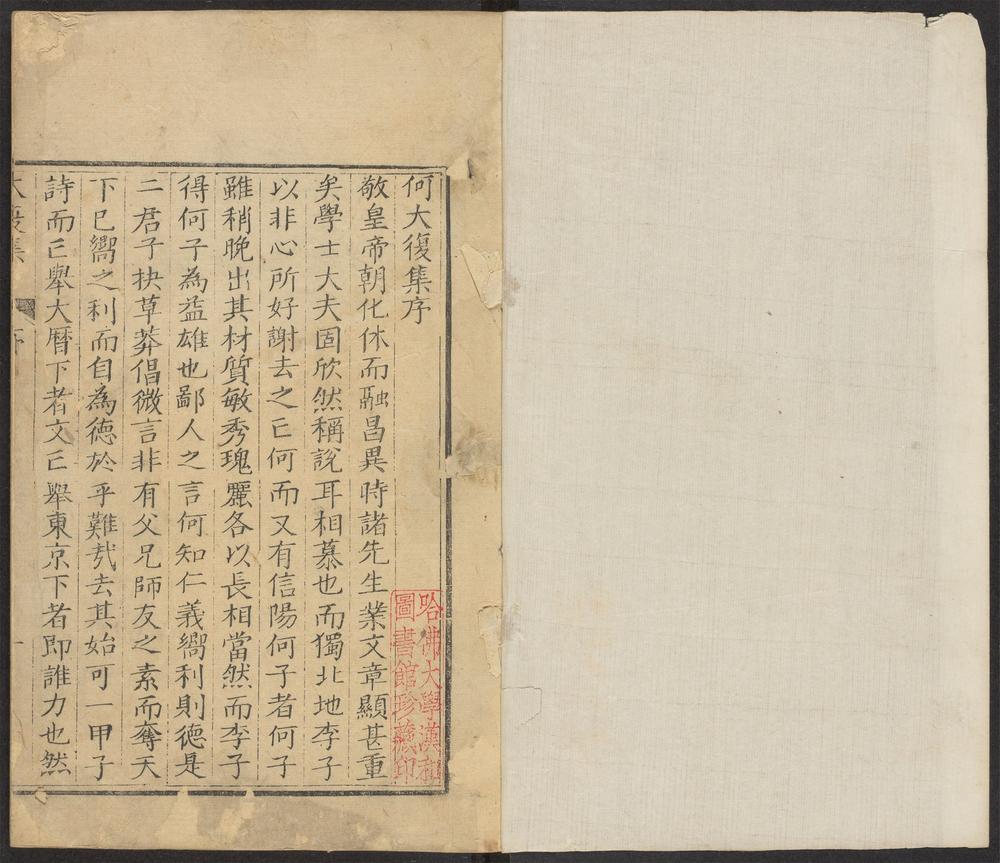 何大復集序
敬皇帝朝化休而融昌異時諸先生業文章顯甚重
矣學士大夫固欣然稱說耳相慕也而獨北地李子
以非心所好謝去之亡何而又有信陽何子者何子
雖稍晚出其材質敏秀瑰麗各以長相當然而李子
得何子為益雄也鄙人之言何知仁義嚮利則徳是
二君子抉草莽倡微言非有父兄師友之素而奪天
下已嚮之利而自為徳於乎難哉去其始可一甲子
詩而亡舉大曆下者文亡舉東京下者即誰力也然
大復集
序
一
哈佛大學漢和
圖書館珍藏印